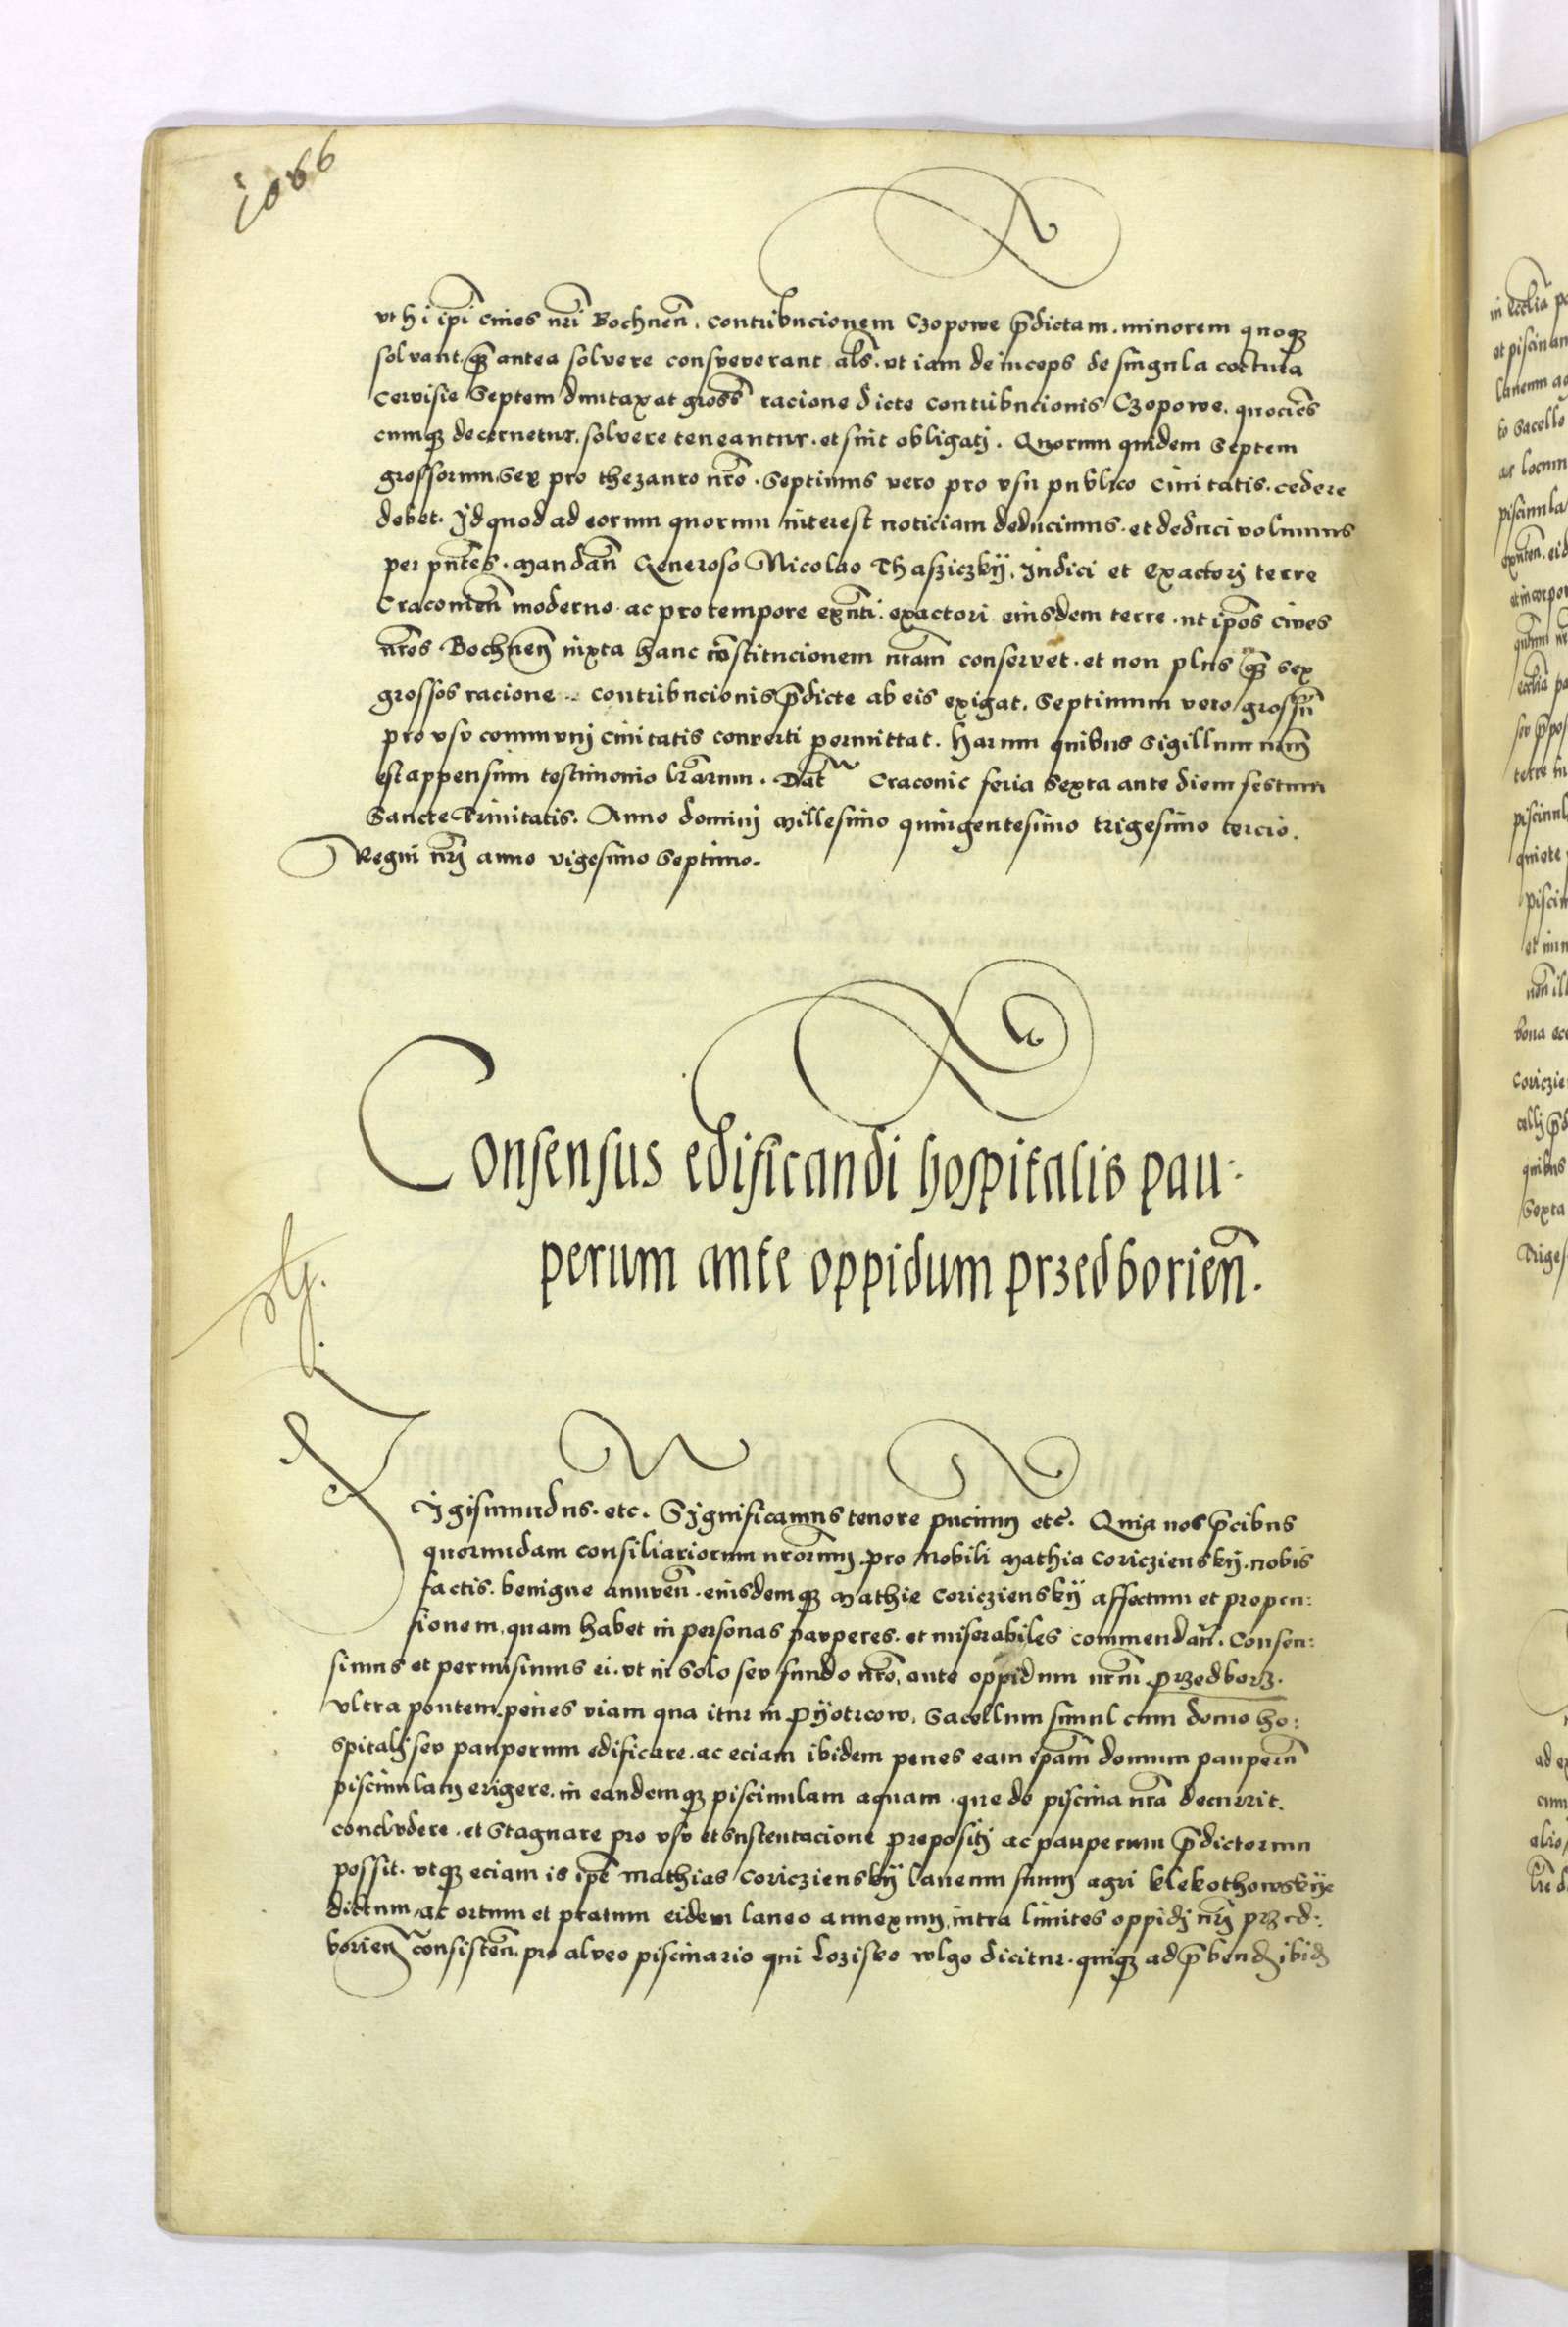 1066
vt hi ip̃i ciues nr̃i Bochnen̄. contribucionem Czopowe p̃dictam. minorem quoqꝫ
solvant. qꝫ̄ antea solvere consveverant al̃s. vt iam deinceps de singula coctura
Cervisie Septem dumtaxat gross̃ racione dicte contribucionis Czopowe. quocies̃
cumqꝫ decernetur. solvere teneantur. et sint obligatj. Quorum quidem Septem
grossorum, Sex pro thezauro nr̃o. Septimus vero pro vsu publico Ciuitatis. cedere
debet. Id quod ad eorum quorum interest noticiam deducimus. et deduci volumus
per pn̄tes. Mandan̄ Generoso Nicolao Thasziczkÿ. Iudici et Exactorj terre
Cracouien̄ moderno. ac pro tempore exn̄ti. exactori eiusdem terre. ut ip̃os Cives
nr̃os Bochnen̄ iuxta hanc cōstitucionem nr̃am conservet. et non plus qꝫ̄ sex
grossos racione contribucionis p̃dicte ab eis exigat. Septimum vero grossū
pro vsv communj Ciuitatis converti permittat. Harum quibus Sigillum nr̃um
est appensum testimonio lr̃arum. Dat̃ Cracouie feria Sexta ante diem festum
Sancte Trinitatis. Anno dominj Millesimo quingentesimo trigesimo tercio.
Regni nr̃j anno vigesimo Septimo.
Consensus edificandi hospitalis pau:
perum ante oppidum przedborien̄.
Sigismundus. etc. Significamus tenore pn̄cium etc̃. Quia nos p̃cibus
quorundam consiliariorum nr̃orum. pro Nobili Mathia Coriczienskÿ. nobis
factis. benigne annuen̄. eiusdemqꝫ Mathie Coriczienskÿ affectum et propen:
sionem, quam habet in personas pavperes. et miserabiles commendan̄. Consen:
simus et permisimus ei. vt in Solo sev fundo nr̃o, ante oppidum nr̃um Przedborz.
vltra pontem, penes viam qua itur in Pÿotrcow, Sacellum simul cum domo ho:
spitalj sev pauperum edificare. ac eciam ibidem penes eam ip̃am domum pauperū
piscinulam erigere. in eandemqꝫ piscinulam aquam. que de piscina nr̃a decurrit.
conclvdere. et Stagnare pro vsv et sustentacione prepositj ac pauperum p̃dictorum
possit. vtqꝫ eciam is ip̃e Mathias Coriczienskÿ laneum suum agri klekothowskÿe
dictum, ac ortum et pratum eidem laneo annexum, intra limites oppidj nr̃j przed:
borien̄ consisten̄. pro alveo piscinario qui Lozisko wlgo dicitur. quiqꝫ ad p̃bend̃ ibid̃